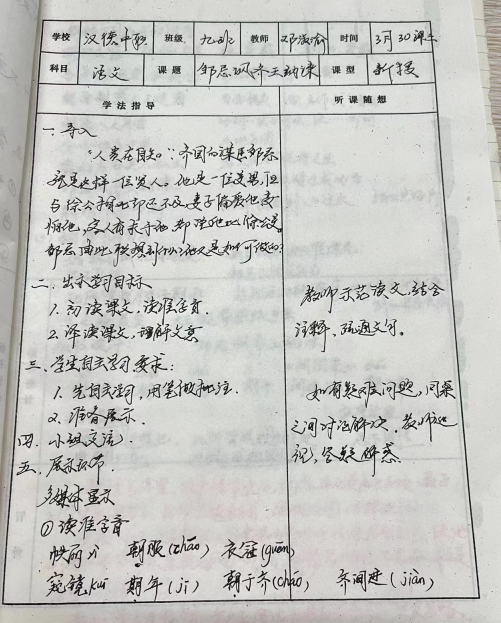 学校 汉德中职 班级 九.2班 教师 邓淑渝 时间 3月30
科目 语文 课题 邹忌讽齐王纳谏 课型 新授
学法指导 听课随想
一.导入
"人贵在自知".齐国的谋臣邹忌
就是这样一位贤人。他是一位美男,但
与徐公相比却还不及,妻子偏爱他妾
惧他,客人有求于他,都说他比徐公美.
邹忌由此联想到什么?他又是如何做的?
二.出示学习目标
1.初读课文,读准字音.
2.译读课文,理解文意
三、学生自主学习要求:
1.先自主学习,用笔做批注.
2.准备展示.
四.小组交流.
五、展示环节.
多媒体显示
①读准字音
昳丽yì 朝服(zhāo) 衣冠(guān)
窥镜kuī 期年(jī) 朝于齐(cháo) 齐间进(jiàn)
教师示范读文,结合
注释,疏通文句.
如有疑难问题,同桌
之间讨论解决,教师巡
视,答疑解惑